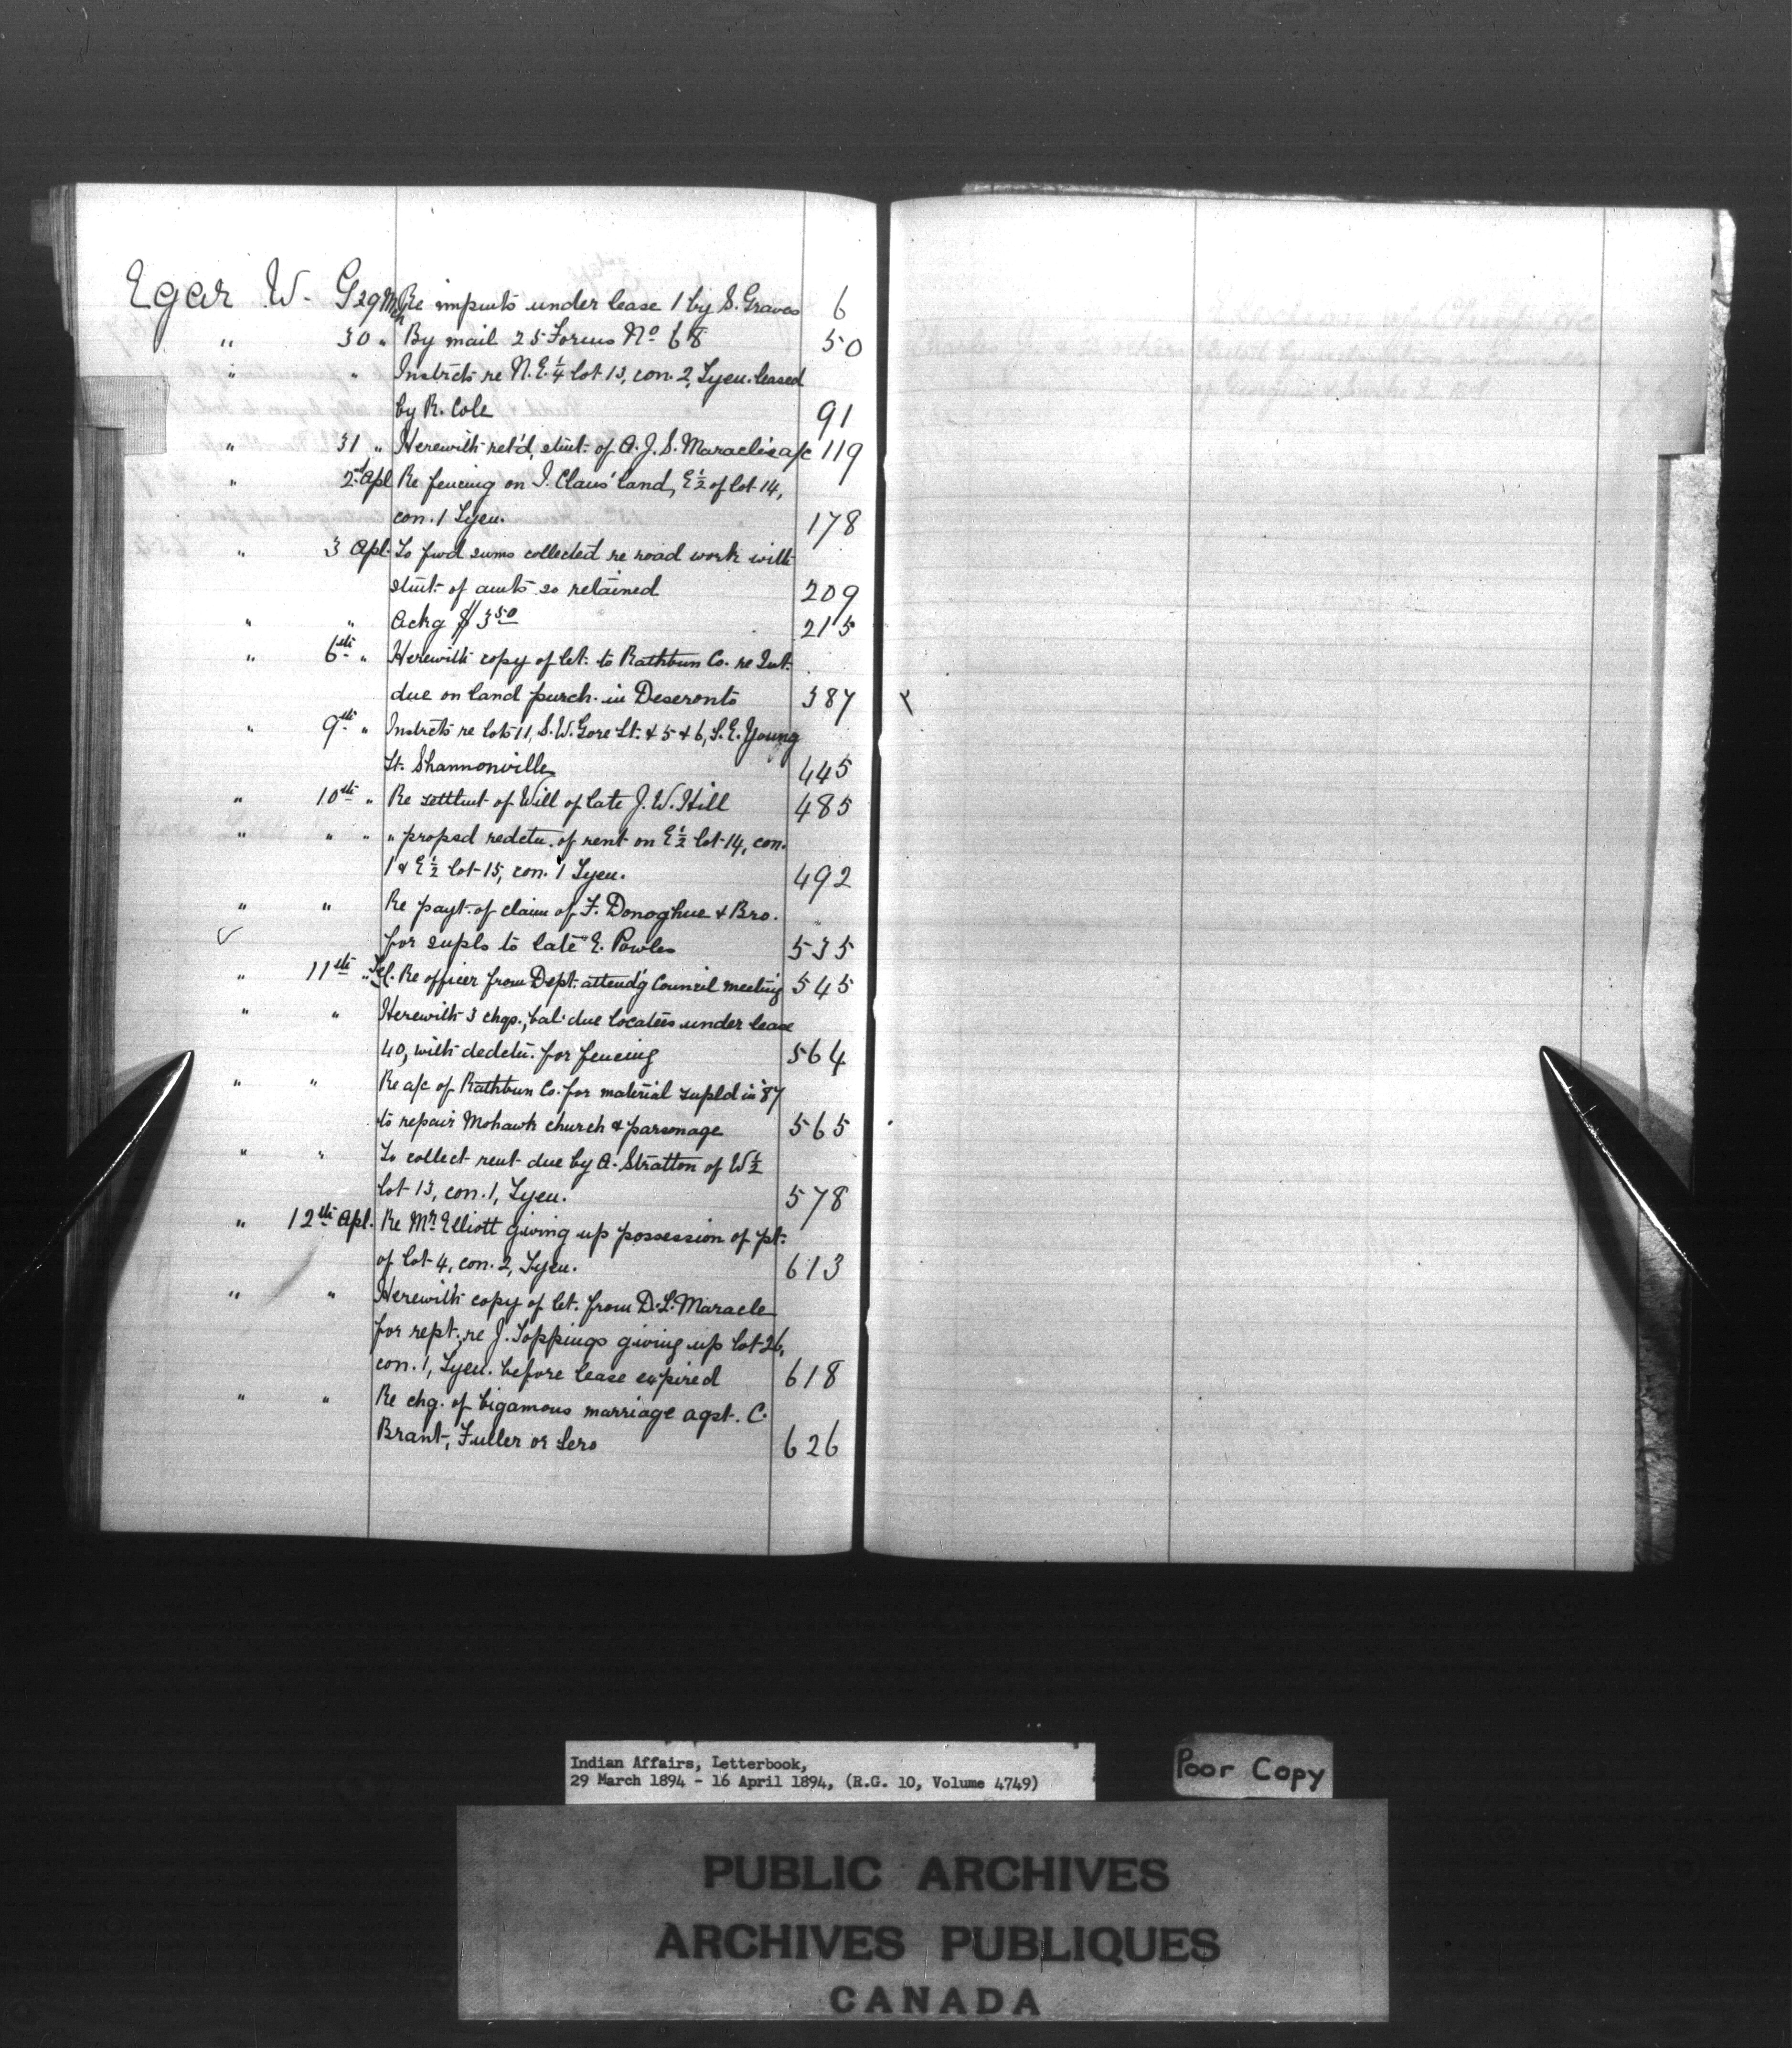 Egar W. G 29 Mch Re impmts under lease 1 by S. Graves 6
" 30 " By mail 25 Forms No 68 50
" " Instrcts re N.E. 1/4 lot 13, con. 2, Tyen. leased
by R. Cole 91
" 31 " Herewith ret'd, stmt. of A. J. S. Maracle's a/c 119
" 2nd Apl Re fencing on I. Claus' land, E 1/2 of lot 14,
con. 1 Tyen. 178
" 3 Apl. To fwd sums collected re road work with
stmt. of amts so retained 209
" " Ackg $3 50 215
" 6th " Herewith copy of let. to Rathbun Co. re Int.
due on land purch. in Deseronto 387
" 9th " Instrcts re lots 11, S.W. Gore St. & 5 & 6, S.E. Young
St. Shannonville 445
" 10th " Re settlmt of Will of late J. W. Hill 485
" " " " propsd redctn. of rent on E 1/2 lot 14, con.
1 & E 1/2 lot 15, con. 1 Tyen. 492
" " Re payt. of claim of F. Donoghue & Bro.
for supls to late E. Powles 535
" 11th " Tel. Re officer from Dept. attend'g Council meeting 545
" " Herewith 3 chqs., bal. due locatees under lease
40, with dedctn. for fencing 564
" " Re a/c of Rathbun Co. for material supld in '87
to repair Mohawk church & parsonage 565
" " To collect rent due by A. Stratton of W 1/2
lot 13, con. 1, Tyen. 578
" 12th Apl. Re Mr. Elliott giving up possession of pt.
of lot 4, con. 2, Tyen. 613
" " Herewith copy of let. from D. L. Maracle
for rept. re J. Toppings giving up lot 26,
con. 1, Tyen. before lease expired 618
" " Re chg. of bigamous marriage agst. C.
Brant, Fuller or Sero 626
Indian Affairs, Letterbook,
29 March 1894 - 16 April 1894, (R.G. 10, Volume 4749)
Poor Copy
PUBLIC ARCHIVES
ARCHIVES PUBLIQUES
CANADA